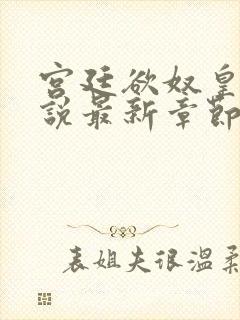 宫廷欲奴皇
說最新章節
表姐夫很温柔